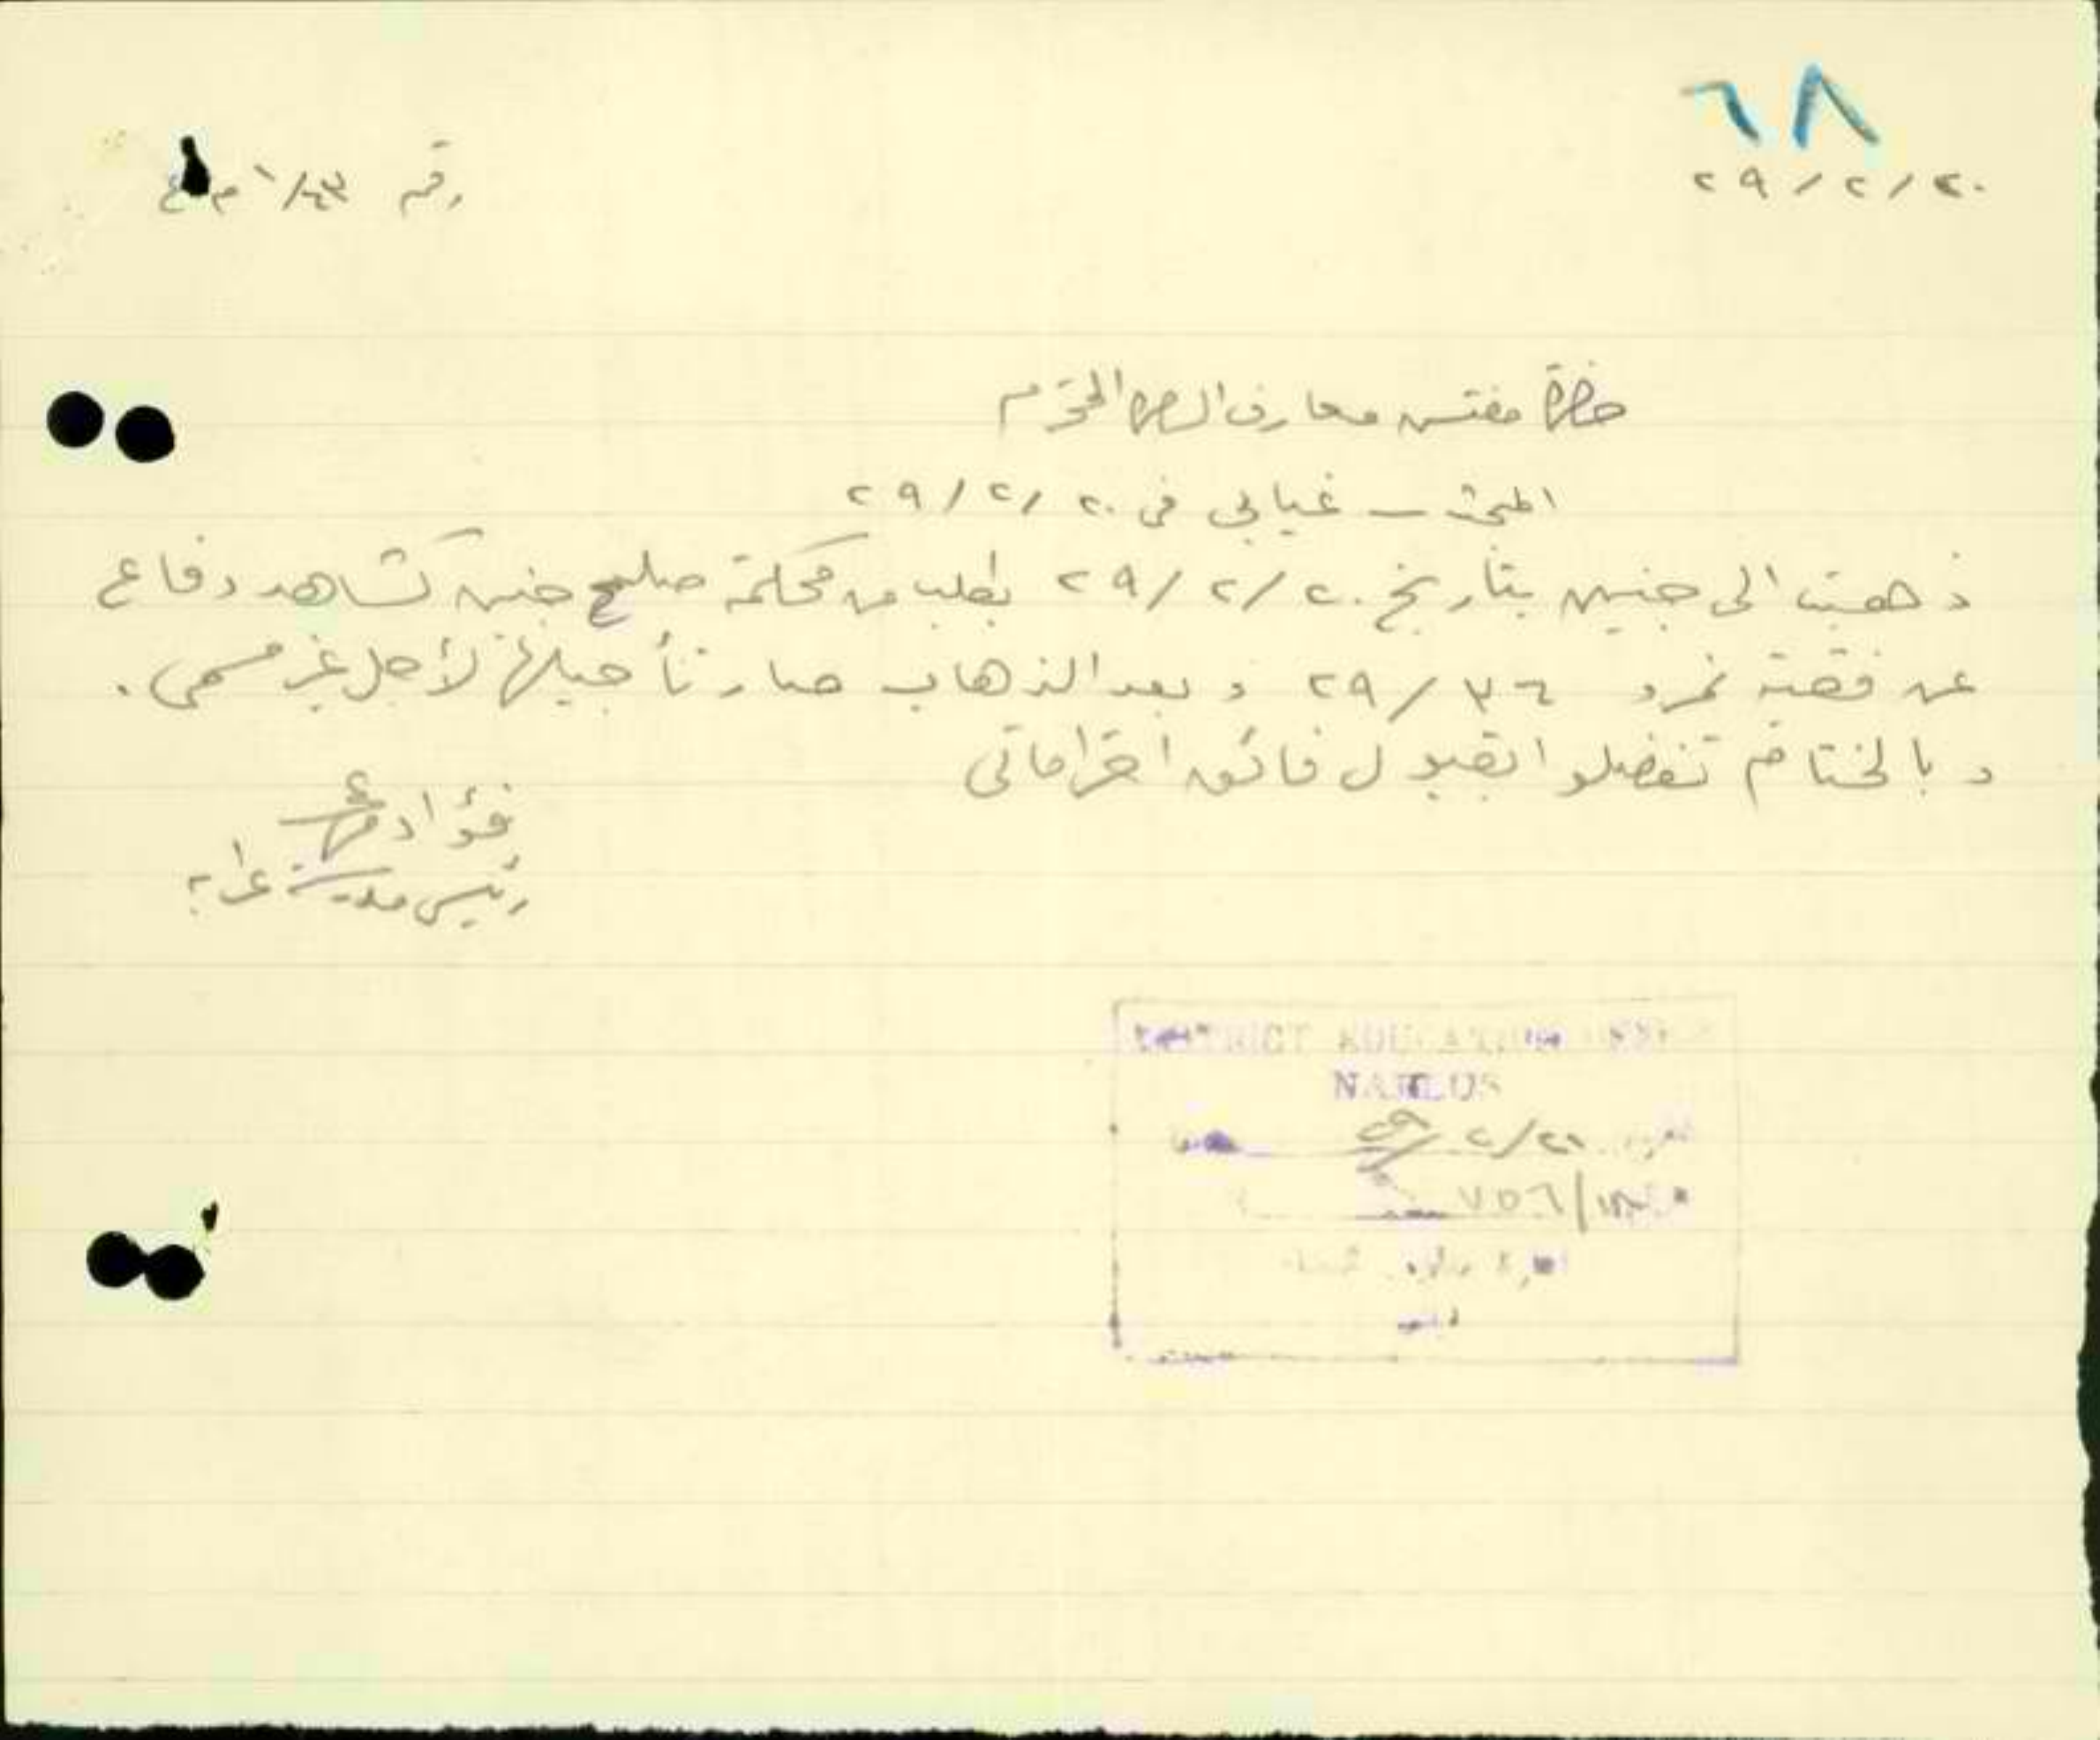 ٦٨
٢٠/٢/٢٩
رقم
حضرة مفتش معارف اللواء المحترم
المبحث - غيابي في ٢٠/٢/٢٩
ذهبت الى جنين بتاريخ ٢٠/٢/٢٩ بطلب من محكمة صلح جنين كشاهد دفاع
عن قضية نمرو ٣٦/٢٩ وبعد الذهاب صار تأجيلها لأجل غير مسمى.
وبالختام تفضلوا بقبول فائق احتراماتي
فؤاد
رئيس مدرسة عرابه
DISTRICT EDUCATION OFFICE
NABLUS
٢١/٢/٢٩
٧٥٦